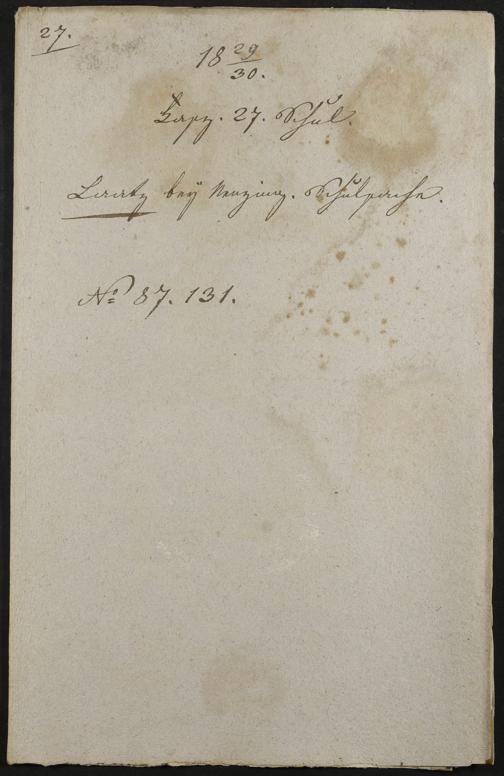 27.
18 29/30.
Fasz. 27. Schul.
Laatz bey Nenzing. Schulsache.
No 87. 131.